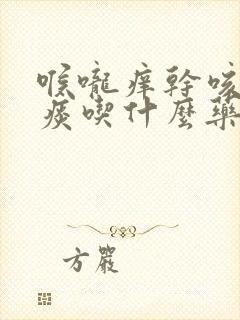 喉嚨癢幹咳
痰喫什麼藥
方嚴